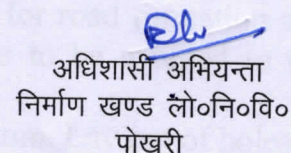 अधिशासी अभियन्ता
निर्माण खण्ड लो०नि०वि०
पोखरी